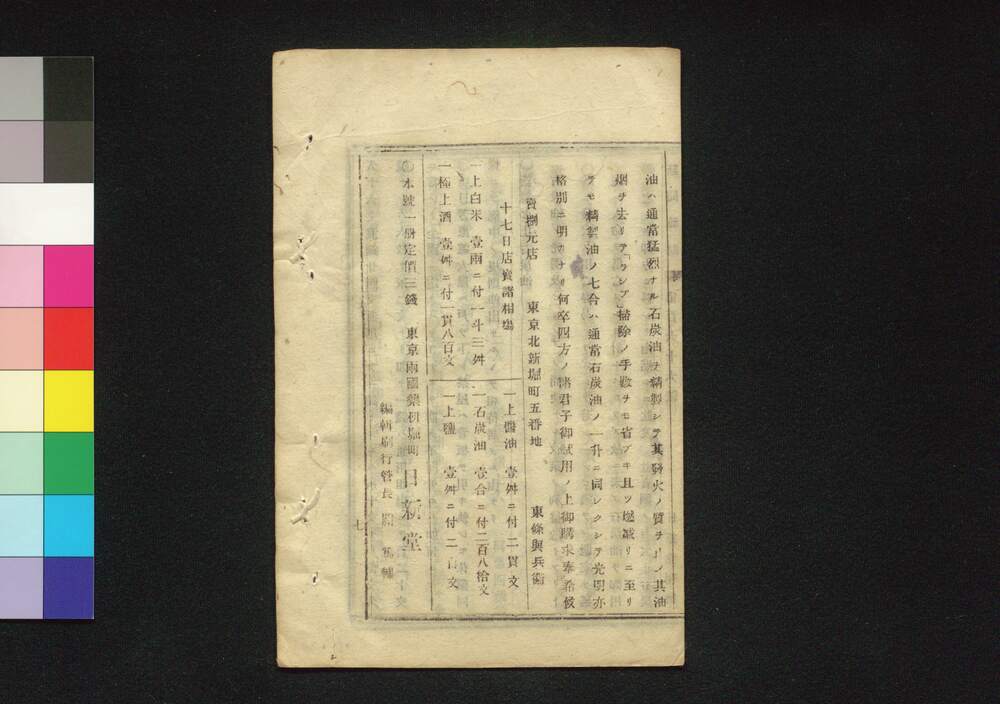 油ハ通常猛烈ナル石炭油ヲ精製シテ其發火ノ質ヲ止ノ其油
烟ヲ去リテ「ランプ」掃除ノ手數ヲモ省ブキ且ツ燃減リニ至リ
テモ精製油ノ七合ハ通常石炭油ノ一升ニ同レクシテ光明亦
格別ニ明カナリ何卒四方ノ諸君子御試用ノ上御購求奉希候
賣捌元店 東京北新堀町五番地 東條與兵衞
十七日店賣諸相塲
一上醬油 壹舛ニ付二貫文
一上白米 壹兩ニ付一斗三舛
一石炭油 壹合ニ付二百八拾文
一極上酒 壹舛ニ付一貫八百文
一上鹽 壹舛ニ付二百文
○本號一册定價三錢 東京兩國藥研堀町 日新堂
編輯刷行管長
七